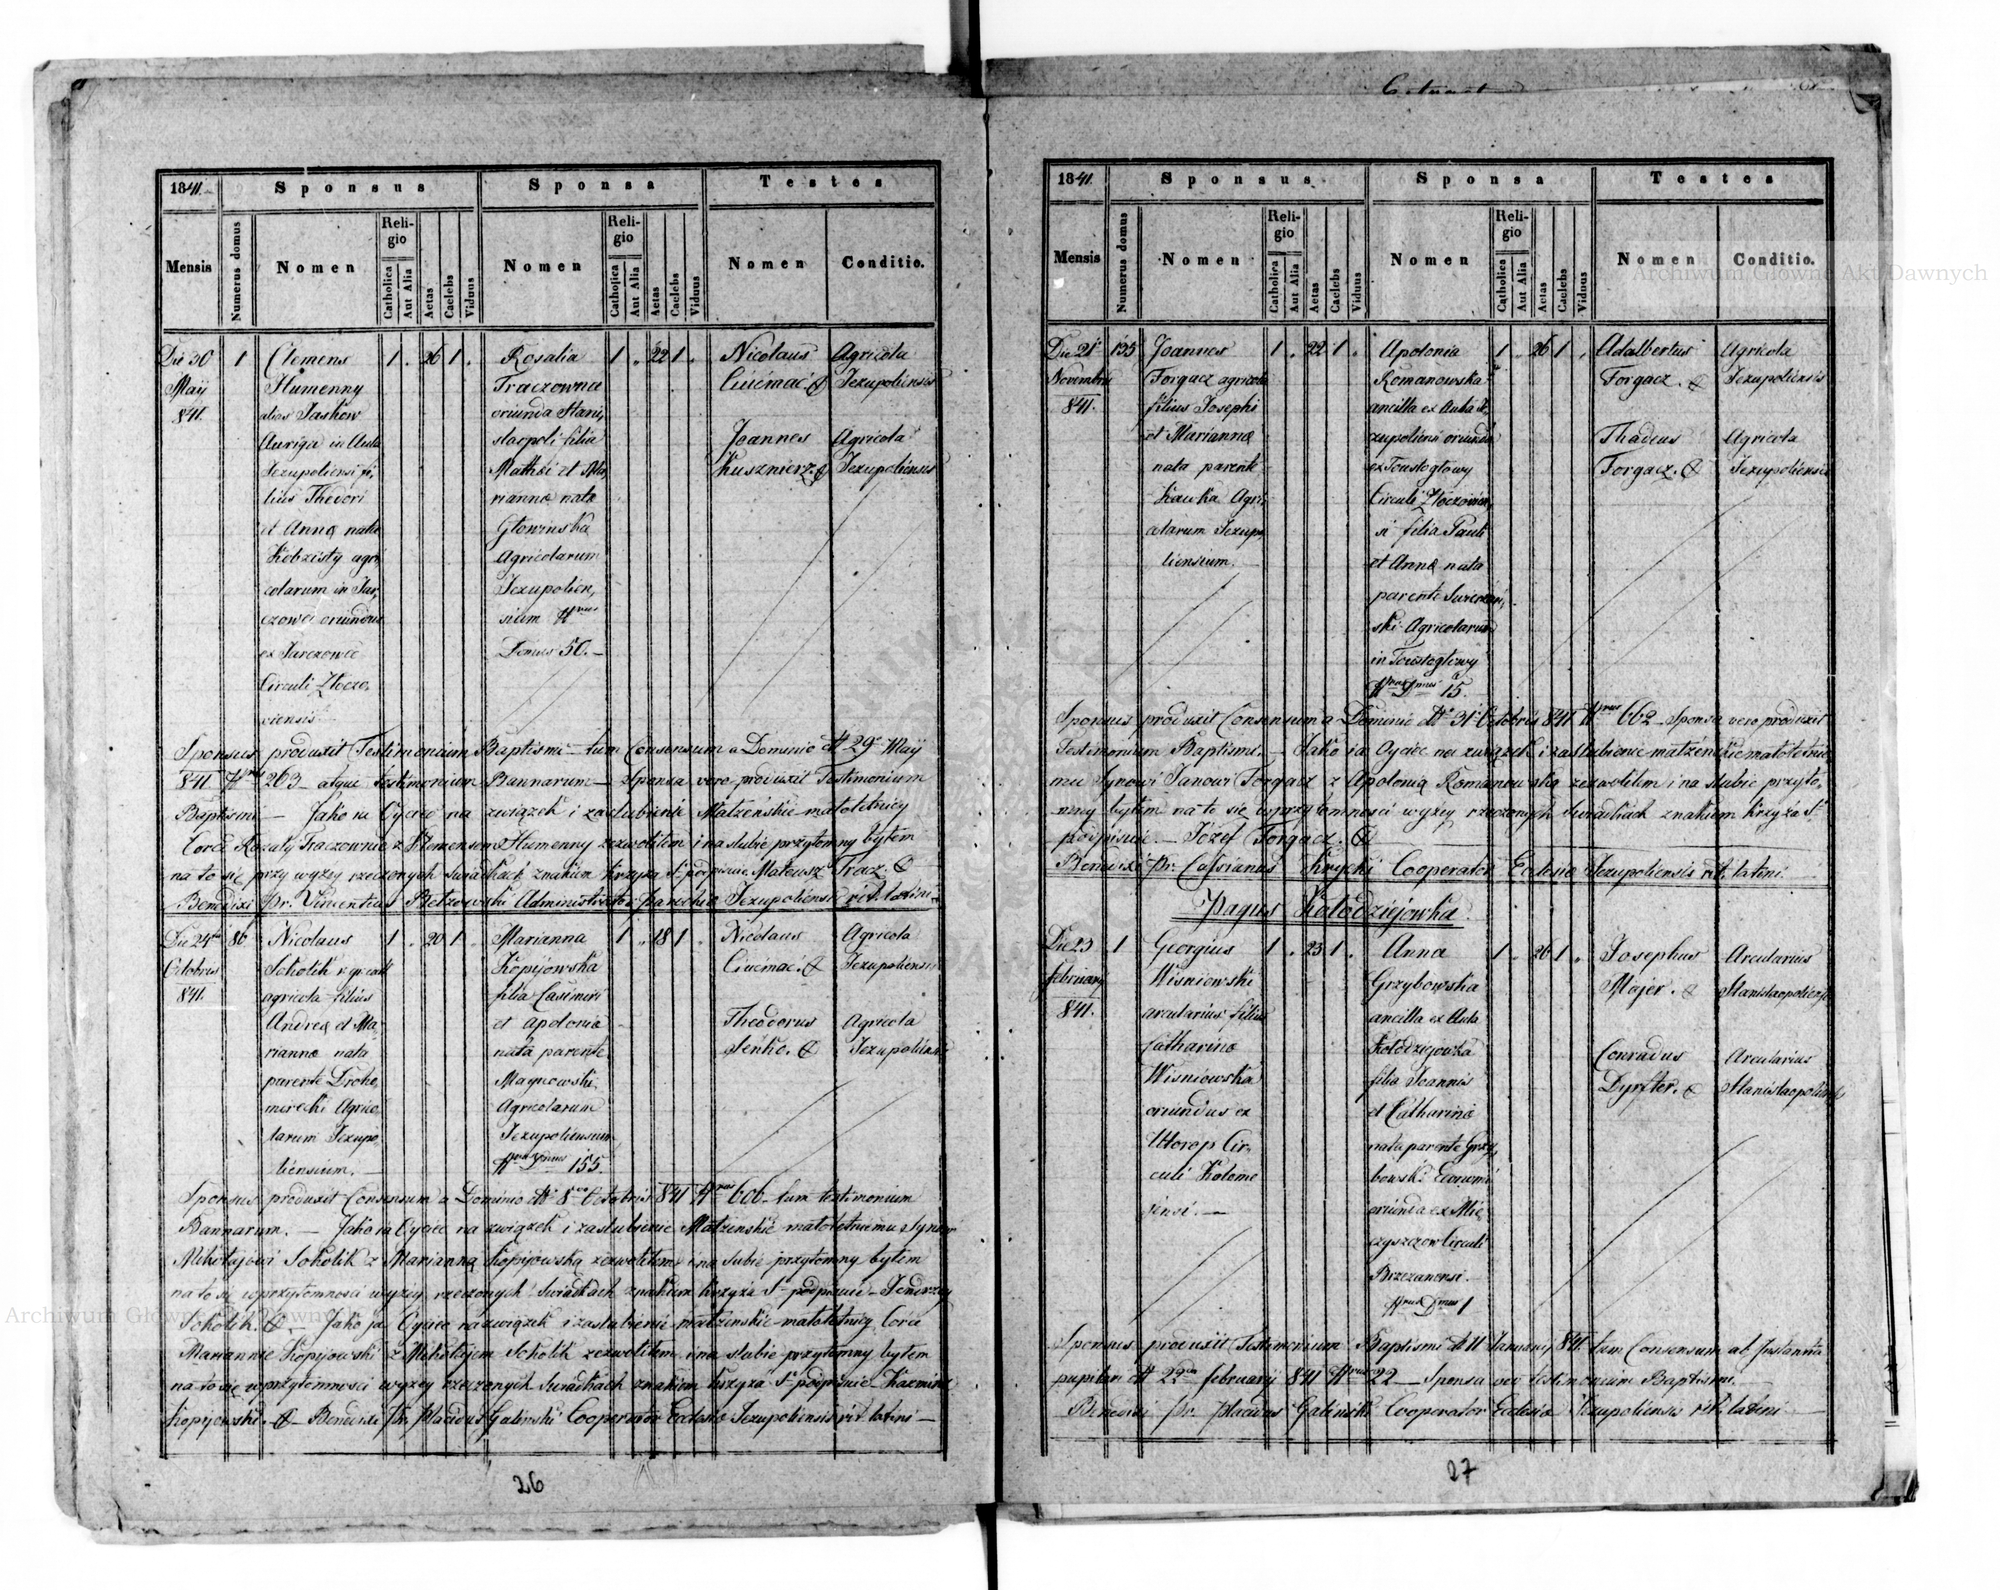 1841.
Sponsus
Sponsa
Testes
Mensis
Numerus domus
Nomen
Religio
Catholica
Aut Alia
Aetas
Caelebs
Viduus
Nomen
Religio
Catholica
Aut Alia
Aetas
Caelebs
Viduus
Nomen
Conditio.
Die 30
May
841.
1
Clemens
Humenny
alias Jaskow
Auriga in Aula
Jezupoliensi fi,
lius Theodori
et Anna nata
agri,
colarum in Jar,
czowci oriundus
ex Jarczowce
Circuli Zloczo,
viensis
1 26 1
Rosalia
Traczowna
oriunda Stani,
slaopoli filia
Mathei et Ma,
rianna nata
Głowinska
Agricolarum
Jezupolien,
sium Nrus
Domus 50.
1 22 1
Nicolaus
Ciućmać.
Agricola
Jezupoliensis
Joannes
Kusznierz.
Agricola
Jezupoliensis
Sponsus produxit Testimonium Baptismi tum Consensum a Dominio 29 May
841 263 atque testimonium Bannorum Sponsa vero produxit Testimonium
Baptismi. — Jako ia Oyciec na związek i zaslubienie Małzeńskie małoletniey
Corce Rozaly Traczownie z Klemensem Humenny zezwolitem i na slubie przytomny bytem
na to się przy wyzey rzeczonych Swiadkach znakiem krzyza S. podpisuie Mateusz Tracz.
Benedixi Pr. Vincentius Administrator Parochia Jezupoliensis rit. latini
Die 24
Octobris
841.
86
Nicolaus
Sokolik
agricola filius
Andrea et Ma,
rianna nata
parente Droho,
mirecki Agrico,
larum Jezupo,
liensium.
1 20 1
Marianna
Kopijowska
filia Casimiri
et Apolonia
nata parente
Agricolarum
Jezupoliensium
155.
1 18 1
Nicolaus
Ciućmać.
Agricola
Jezupoliensis
Theodorus
Senko.
Agricola
Jezupoliensis
Sponsus produxit Consensum a Dominio Octobris 841 tum testimonium
Bannorum. — Jako ia Oyciec na związek i zaslubienie Matzenskie małoletniemu Synowi
Mikołajowi Sokolik z Marianną Kopijowską zezwolitem i na slubie przytomny bytem
na to się w przytomnosci wyzey rzeczonych Swiadkach znakiem krzyza S. podpisuie Jendrzey
Sokolik. — Jako ja Oyciec na związek i zaslubienie matzenskie małoletniey Corce
Mariannie Kopijowski z Mikołajem Sokolik zezwolitem i na slubie przytomny bytem
na to się w przytomnosci wyzey rzeczonych Swiadkach znakiem krzyza S. podpisuie Kazimierz
Kopijowski. — Benedixi Pr. Placidus Galinski Cooperator Ecclesia Jezupoliensis rit. latini —
26
1841.
Sponsus.
Sponsa
Testes
Mensis
Numerus domus
Nomen
Religio
Catholica
Aut Alia
Aetas
Caelebs
Viduus
Nomen
Religio
Catholica
Aut Alia
Aetas
Caelebs
Viduus
Nomen
Conditio.
Die 21
Novembris
841.
135
Joannes
Forgacz agricola
filius Josephi
et Marianna
nata parente
Kawka Agri,
colarum Jezupo,
liensium.
1 22 1
Apolonia
Romanowska
ancilla ex Aula Je,
zupoliensi oriunda
ex Toustogłowy
Circuli Zloczovien,
si filia Pauli
et Anna nata
parente
ski Agricolarum
in Toustogłowy
15.
1 26 1
Adalbertus
Forgacz.
Agricola
Jezupoliensis
Thadeus
Forgacz.
Agricola
Jezupoliensis
Sponsus produxit Consensum a Dominio 31 Octobris 841 662 Sponsa vero produxit
Testimonium Baptismi. — Jako ia Oyciec na związek i zaslubienie matzenskie małoletnie,
mu Synowi Janowi Forgacz z Apolonią Romanowską zezwolitem i na slubie przyto,
mny bytem na to się w przytomnosci wyzey rzeczonych Swiadkach znakiem krzyża S.
podpisuie. — Józef Forgacz.
Benedixi Pr. Cassianus Krycki Cooperator Ecclesia Jezupoliensis rit. latini
Pagus Kołodziejowka
Die 23
february
841.
1
Georgius
Wisniowski
arcularius filius
Catharina
Wisniowska
oriundus ex
Uttorop Cir,
culi Kolome
jensi. —
1 23 1
Anna
Grzybowska
ancilla ex Aula
Kołodziejowka
filia Joannis
et Catharina
nata parente Grzy,
bowski Economi
oriunda ex Mie,
czyszczow Circuli
Brzezanensi.
1
1 26 1
Josephus
Majer.
Arcularius
Stanislaopoliensis
Conradus
Dyrster.
Arcularius
Stanislaopoliensis
Sponsus produxit Testimonium Baptismi 11 January 841. tum Consensum ab Instantia
pupillari 22 february 841 22 — Sponsa vero testimonium Baptismi.
Benedixi Pr. Placidus Galinski Cooperator Ecclesia Jezupoliensis rit. latini
27
Archiwum Główne Akt Dawnych
Archiwum Główne Akt Dawnych